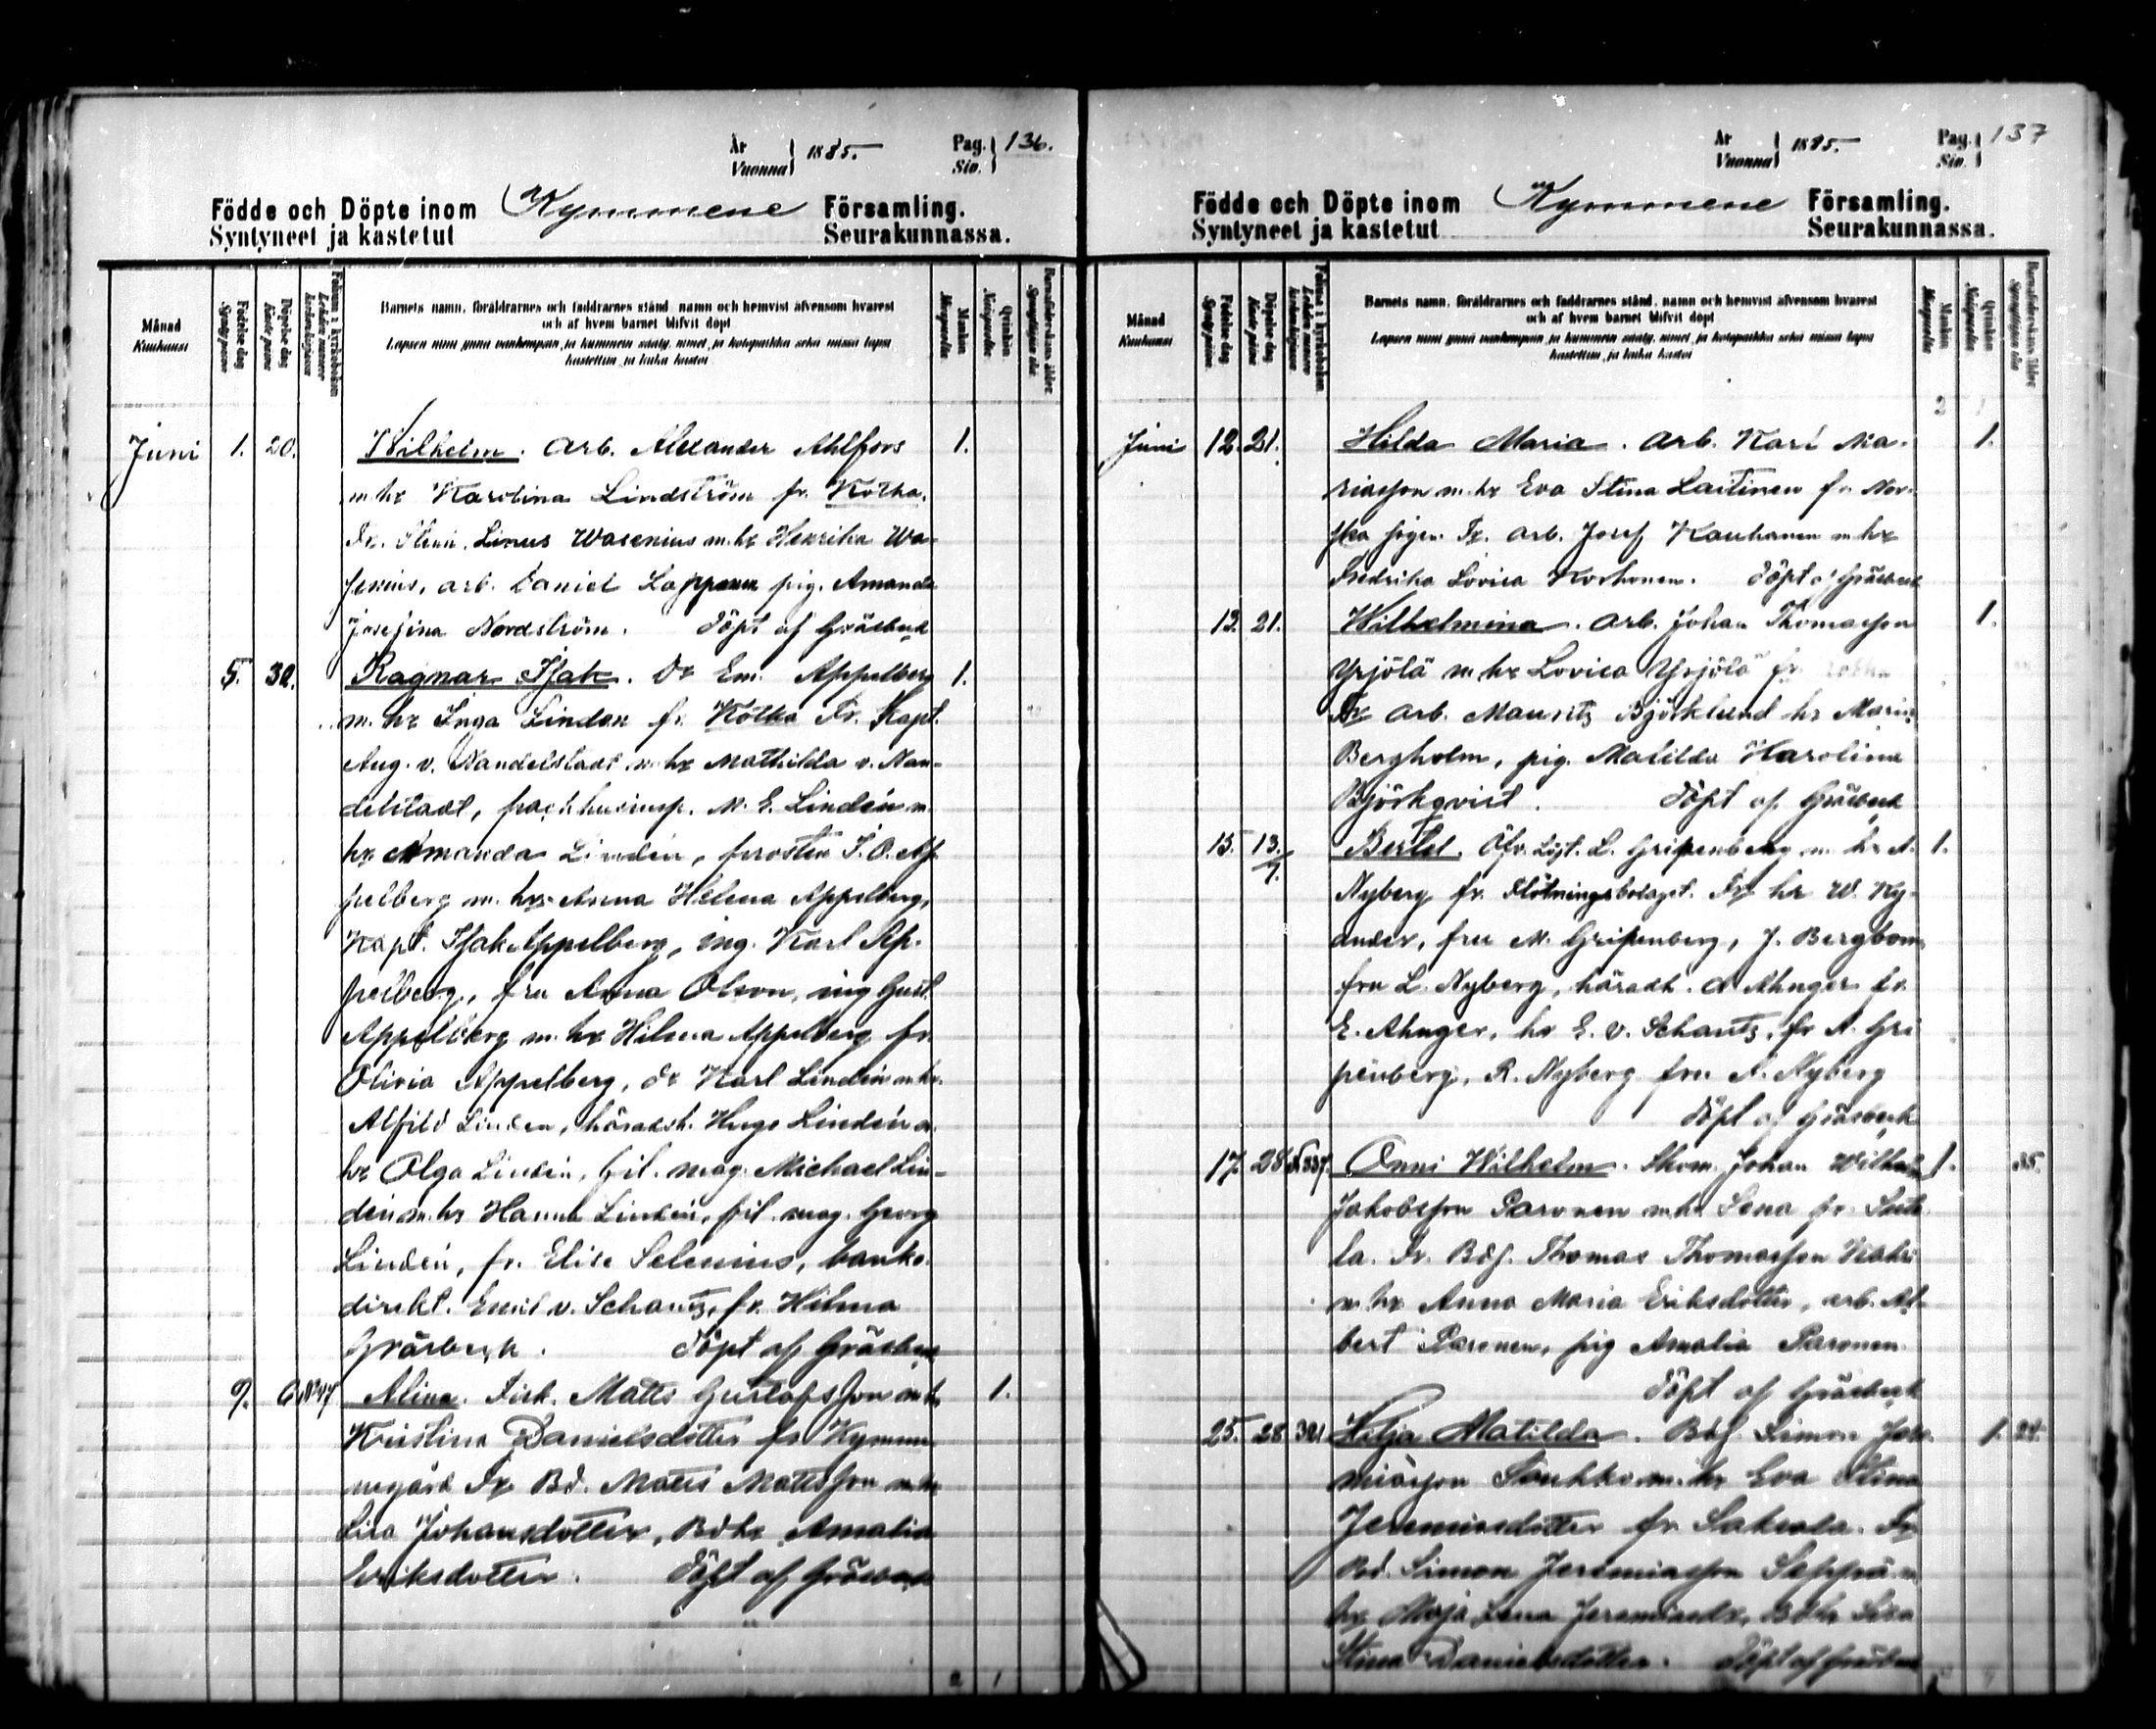 År
Vuonna
1885.
Pag.
Siv.
136.
Födde och Döpte inom Kymmene Församling.
Syntyneet ja kastetut Seurakunnassa.
Månad
Kuukausi
Födelse dag
Syntypäivä
Döpelse dag
Kaste päivä
Barnets namn, föräldrarnes och faddrarnes stånd, namn och hemvist äfvensom hvarest
och af hvem barnet blifvit döpt
Mankön
Miespuolta
Qvinkön
Naispuolta
Juni 1. 20. Wilhelm. Arb. Alexander Ahlfors 1.
m. hr Karolina Lindström fr. Kotka.
Fr. Linus Wasenius m. hr Henrika Wa-
senius, arb. Daniel Lopponen pig. Amanda
Josefina Nordström. Döpt af Gräsbeck
5. 30. Ragnar Isak. Dr Em. Appelberg 1.
m. hr Inga Linden fr. Kotka Fr. Kapt.
Aug. v. Nandelstadt m. hr Mathilda v. Nan-
delstadt, packhusinsp. M. E. Lindén m.
hr Amanda Lindén, prosten I. O. Ap-
pelberg m. hr Anna Helena Appelberg,
Kapt. Isak Appelberg, ing. Karl Ap-
pelberg, fru Anna Olson, ing Gust.
Appelberg m. hr Hilma Appelberg fr.
Olivia Appelberg, dr Karl Lindén m. hr.
Alfild Linden, häradsh. Hugo Lindén m.
hr Olga Lindén, fil. mag. Michael Lin-
dén m. hr Hanna Lindén, fil. mag. Georg
Lindén, fr. Elise Selenius, banko-
direkt. Emil v. Schantz, fr. Hilma
Gräsbeck. Döpt af Gräsbeck
9. Alina. Matts Gustafsson m. h.
Kristina Danielsdotter fr Kymme-
negård Fr Bd. Matts Mattsson m. hr
Lisa Johansdotter, Bdhr Amalia
Eriksdotter. Döpt af Gräsbeck
2 1
År
Vuonna
1885.
Pag.
Siv.
137
Födde och Döpte inom Kymmene Församling.
Syntyneet ja kastetut Seurakunnassa.
Månad
Kuukausi
Födelse dag
Syntypäivä
Döpelse dag
Kaste päivä
Barnets namn, föräldrarnes och faddrarnes stånd, namn och hemvist äfvensom hvarest
och af hvem barnet blifvit döpt
Mankön
Miespuolta
Qvinkön
Naispuolta
Juni 12. 21. Hilda Maria. Arb. Karl Ma- 1.
riasson m. hr Eva Stina Laitinen fr. Nor-
ska sågen. Fr. arb. Josef Kauhanen m. hr
Fredrika Lovisa Korhonen. Döpt af Gräsbeck
13. 21. Wilhelmina. Arb. Johan Thomasson 1.
Yrjölä m. hr Lovisa Yrjölä fr.
Fr arb. Mauritz Björklund hr Maria
Bergholm, pig. Matilda Karolina
Björkqvist. Döpt af Gräsbeck
15. 13/7. Bertel. Öfv. Löjt. L. Gripenberg m. hr A. 1.
Nyberg fr. Flötningsbolaget. Fr hr W. Ny-
ander, fru M. Gripenberg, J. Bergbom,
fru L. Nyberg, häradh. A Ahnger fr.
E. Ahnger, hr E. v. Schantz, fr A. Gri-
penberg, R. Nyberg fru A. Nyberg
Döpt af Gräsbeck
17. 28. Onni Wilhelm. Skom. Johan Wilhelm 1. 35.
Jakobsson Paronen m. hr Lena fr.
la. Fr. Bdf. Thomas Thomasson
m. hr Anna Maria Eriksdotter, arb. Al-
bert Paronen, pig Amalia Paronen
Döpt af Gräsbeck
25. 28. 321 Hilja Matilda. Bdf. Simon Jere- 1. 24.
miasson m. hr Eva Stina
Jeremiasdotter fr. Saksala. Fr
Bd. Simon Jeremiasson Seppä m
hr Maja Lena Jeremiasdr, Bdhr Lisa
Stina Danielsdotter. Döpt af Gräsbeck